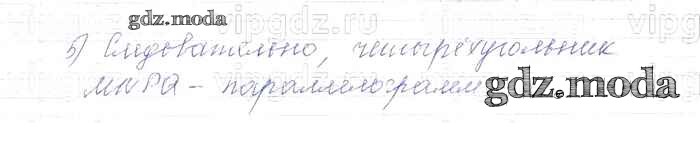 gdz.moda
5) Следовательно, четырёхугольник
MNPQ - параллелограмм.
gdz.moda